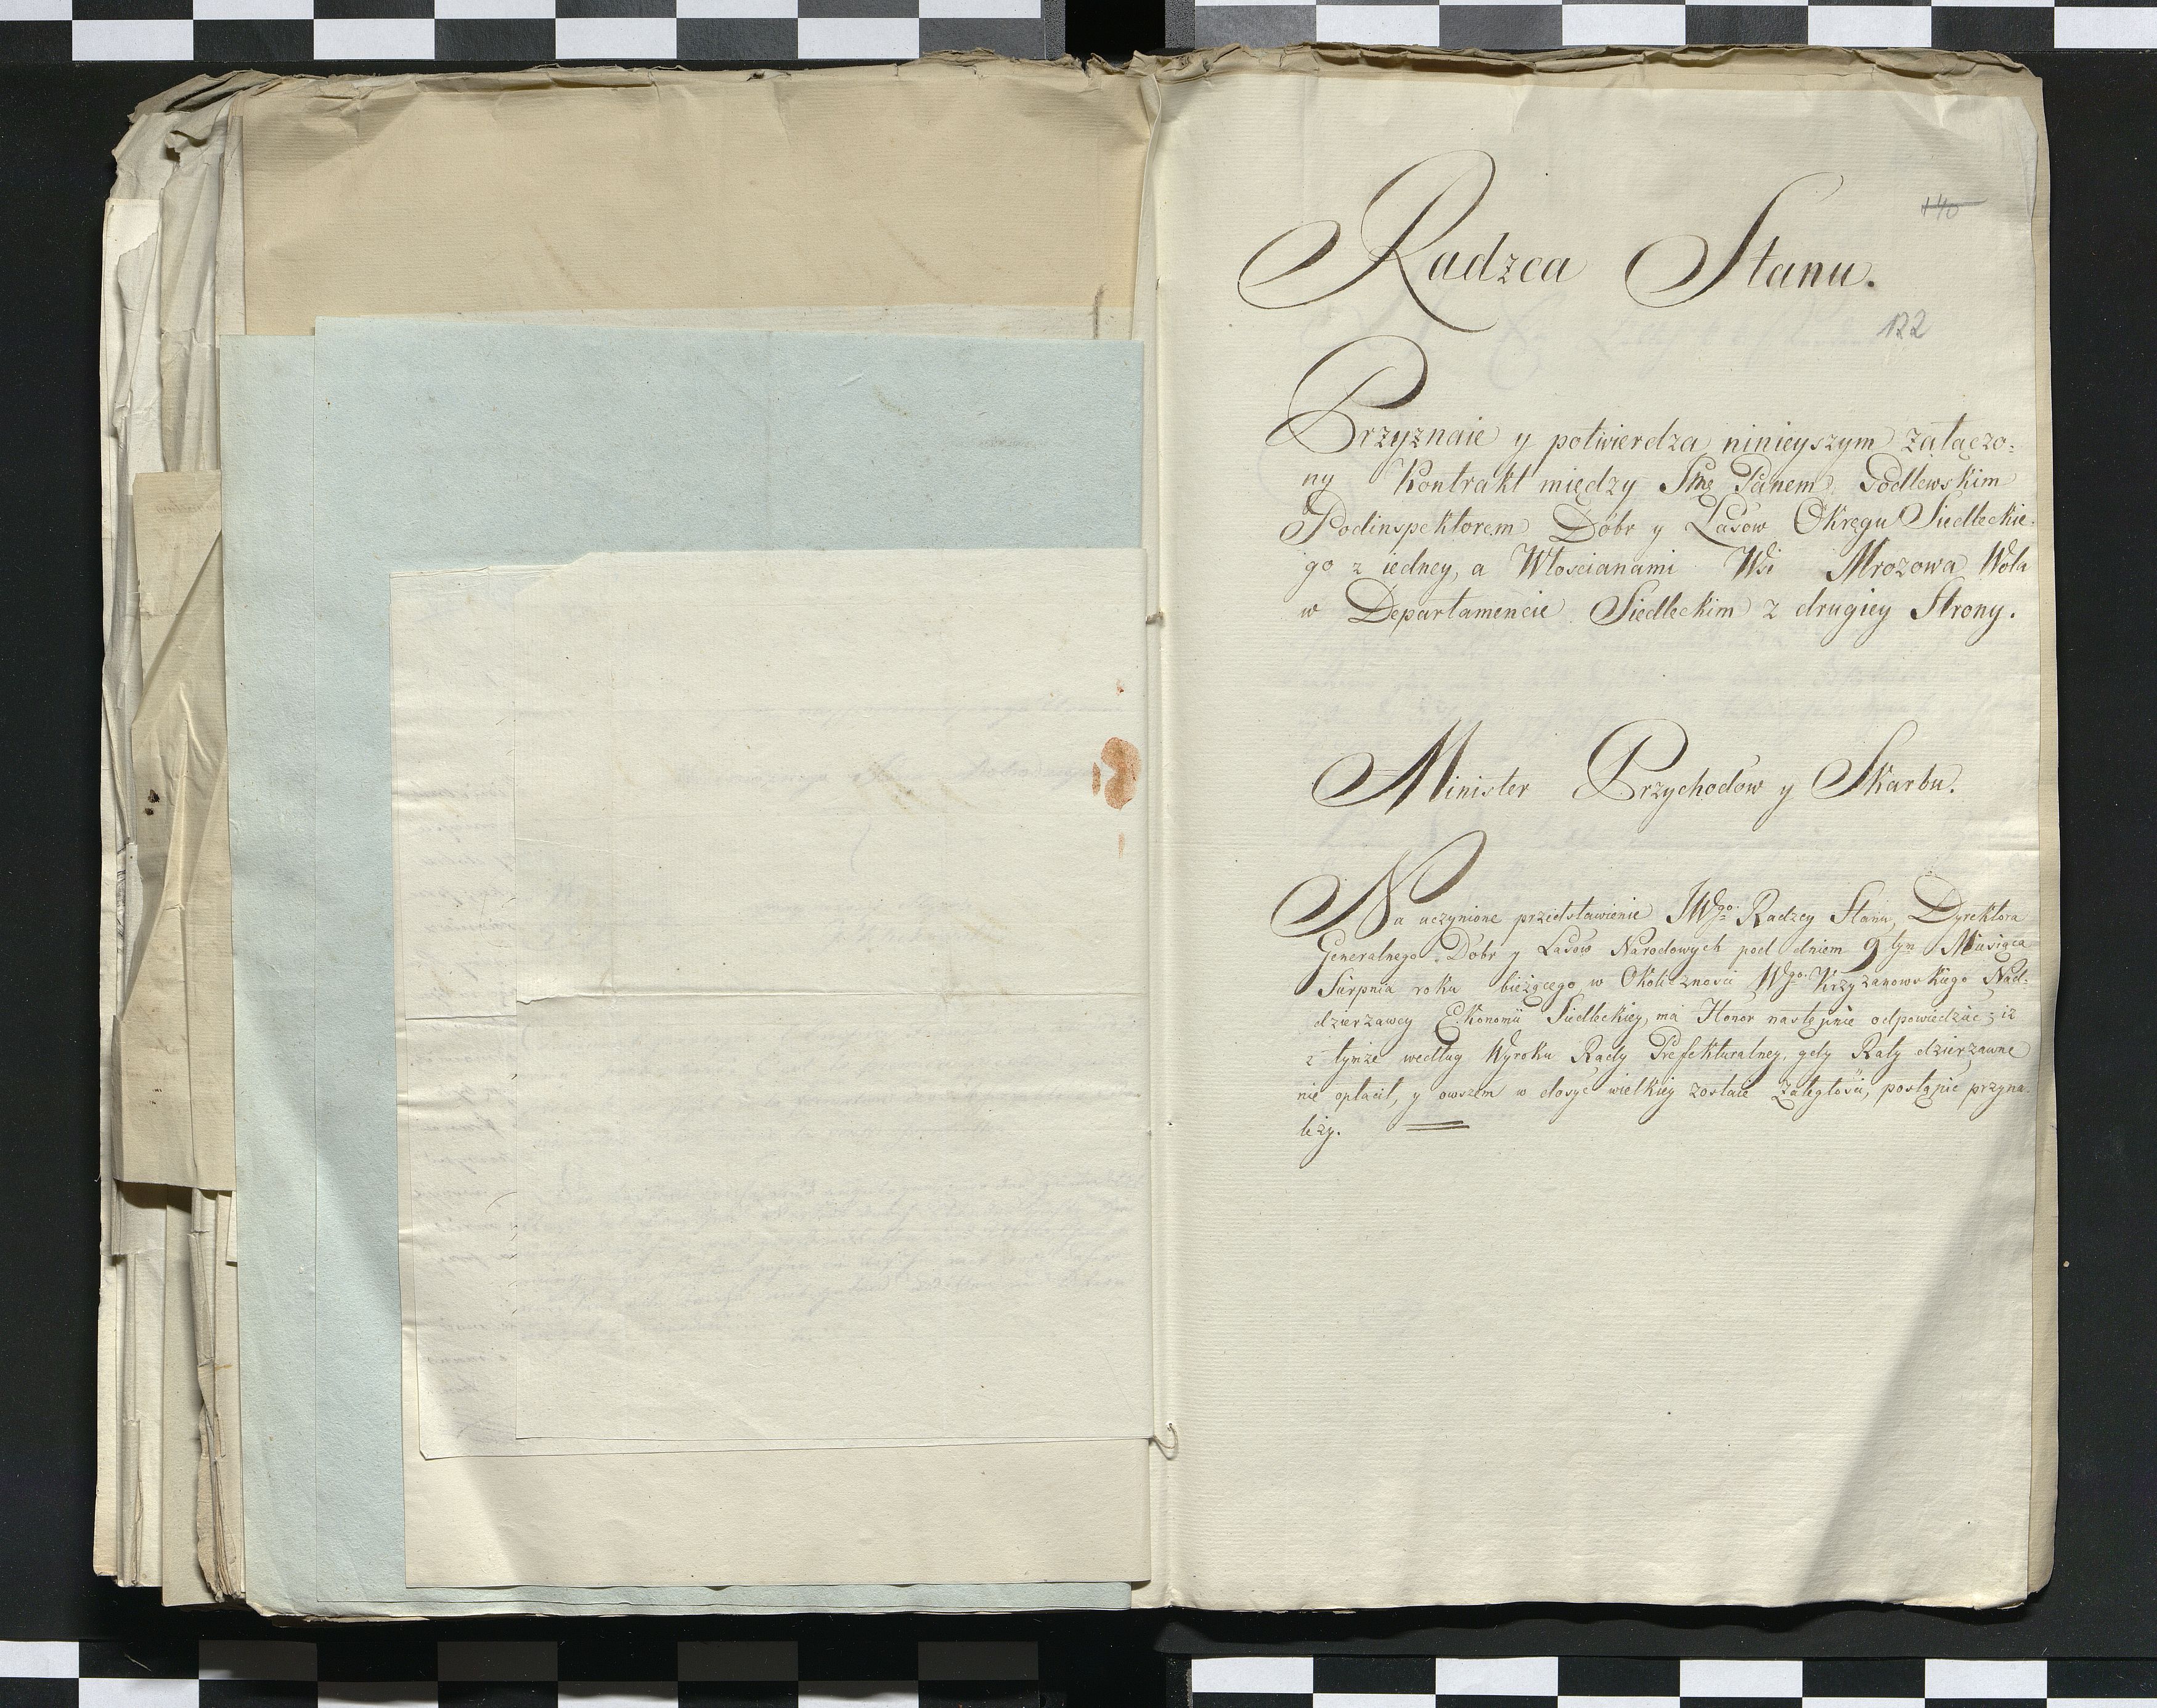 140
Radzca Stanu.
122
Przyznaie y potwierdza ninieyszym załączo:
ny Kontrakt między Jmę Panem Godlewskim
Podinspektorem Dóbr y Lasów Okręgu Siedleckie:
go z iedney, a Włoscianami Wsi Mrozowa Wola
w Departamencie Siedleckim z drugiey Strony.
Minister Przychodów y Skarbu.
Na uczynione przedstawienie JWgo Radzcy Stanu, Dyrektora
Generalnego Dóbr y Lasów Narodowych pod dniem 9tym Miesiąca
Sierpnia roku bieżącego w Okoliczności Wgo Krzyżanowskiego Nad:
dzierzawcy Ekonomii Siedleckiey, ma Honor następnie odpowiedzieć; iż
z tymże według Wyroku Rady Prefekturalney, gdy Raty dzierzawne
nie opłacił, y owszem w dosyć wielkiey zostaie Zaległości, postąpić przyna:
leży.